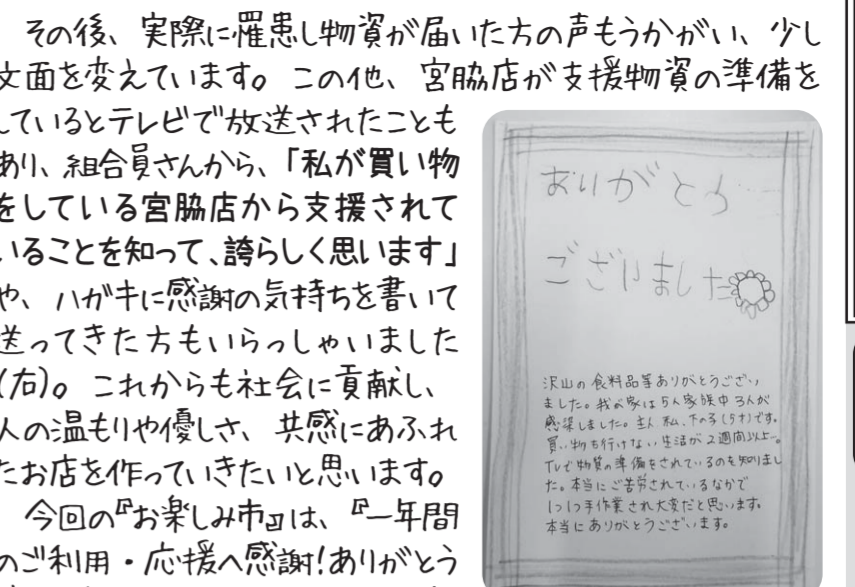 その後、実際に罹患し物資が届いた方の声もうかがい、少し
文面を変えています。この他、宮脇店が支援物資の準備を
しているとテレビで放送されたことも
あり、組合員さんから、「私が買い物
をしている宮脇店から支援されて
いることを知って、誇らしく思います」
や、ハガキに感謝の気持ちを書いて
送ってきた方もいらっしゃいました
(右)。これからも社会に貢献し、
人の温もりや優しさ、共感にあふれ
たお店を作っていきたいと思います。
今回の『お楽しみ市』は、『一年間
のご利用・応援へ感謝!ありがとう
ありがとう
ございました
沢山の食料品等ありがとうござい
ました。我が家は5人家族中3人が
感染しました。主人、私、下の子(5才)です。
買い物も行けない生活が2週間以上…。
TVで物資の準備をされているのを知りまし
た。本当にご苦労されているなかで
1つ1つ手作業され大変だと思います。
本当にありがとうございます。